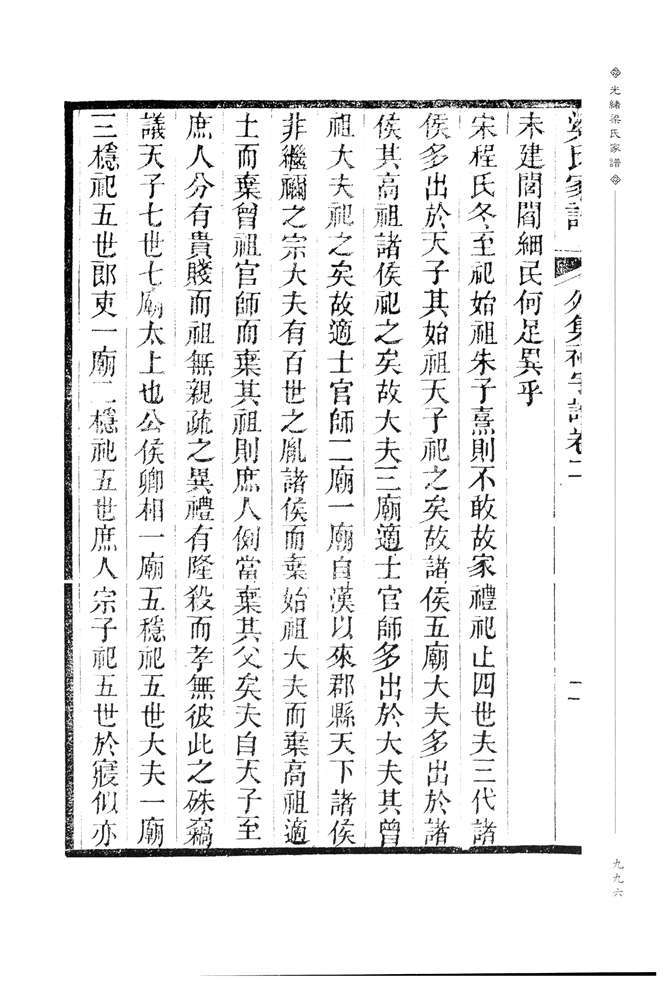 光緒梁氏家譜
九九六
梁氏家譜 外集祠宇譜卷二 二
未建閭閻細民何足異乎
宋程氏冬至祀始祖朱子熹則不敢故家禮祀止四世夫三代諸
侯多出於天子其始祖天子祀之矣故諸侯五廟大夫多出於諸
侯其高祖諸侯祀之矣故大夫三廟適士官師多出於大夫其曾
祖大夫祀之矣故適士官師二廟一廟自漢以來郡縣天下諸侯
非繼禰之宗大夫有百世之胤諸侯而棄始祖大夫而棄高祖適
士而棄曾祖官師而棄其祖則庶人例當棄其父矣夫自天子至
庶人分有貴賤而祖無親疏之異禮有隆殺而孝無彼此之殊竊
議天子七世七廟太上也公侯卿相一廟五穩祀五世大夫一廟
三穩祀五世郎吏一廟二穩祀五世庶人宗子祀五世於寢似亦